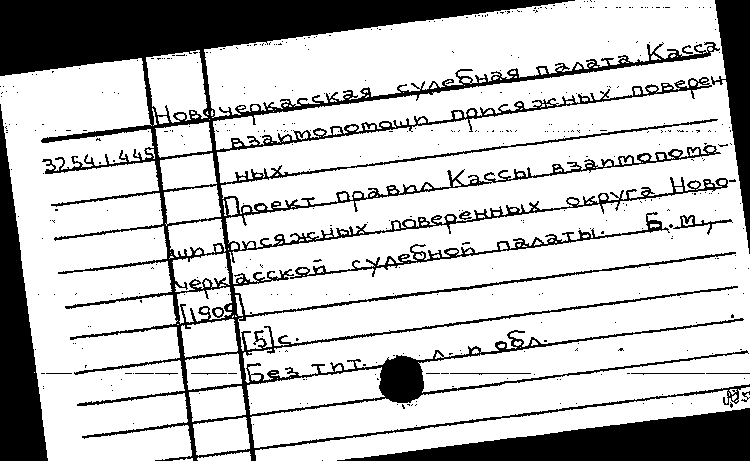 Новочеркасская судебная палата. Касса
взаимопомощи присяжных поверен
37.54.1.445
ных.
Проект правил Кассы взаимопомо-
щи присяжных поверенных округа Ново-
черкасской судебной палаты. Б.м.,
[1909].
[5]с.
Без тит. л. и обл.